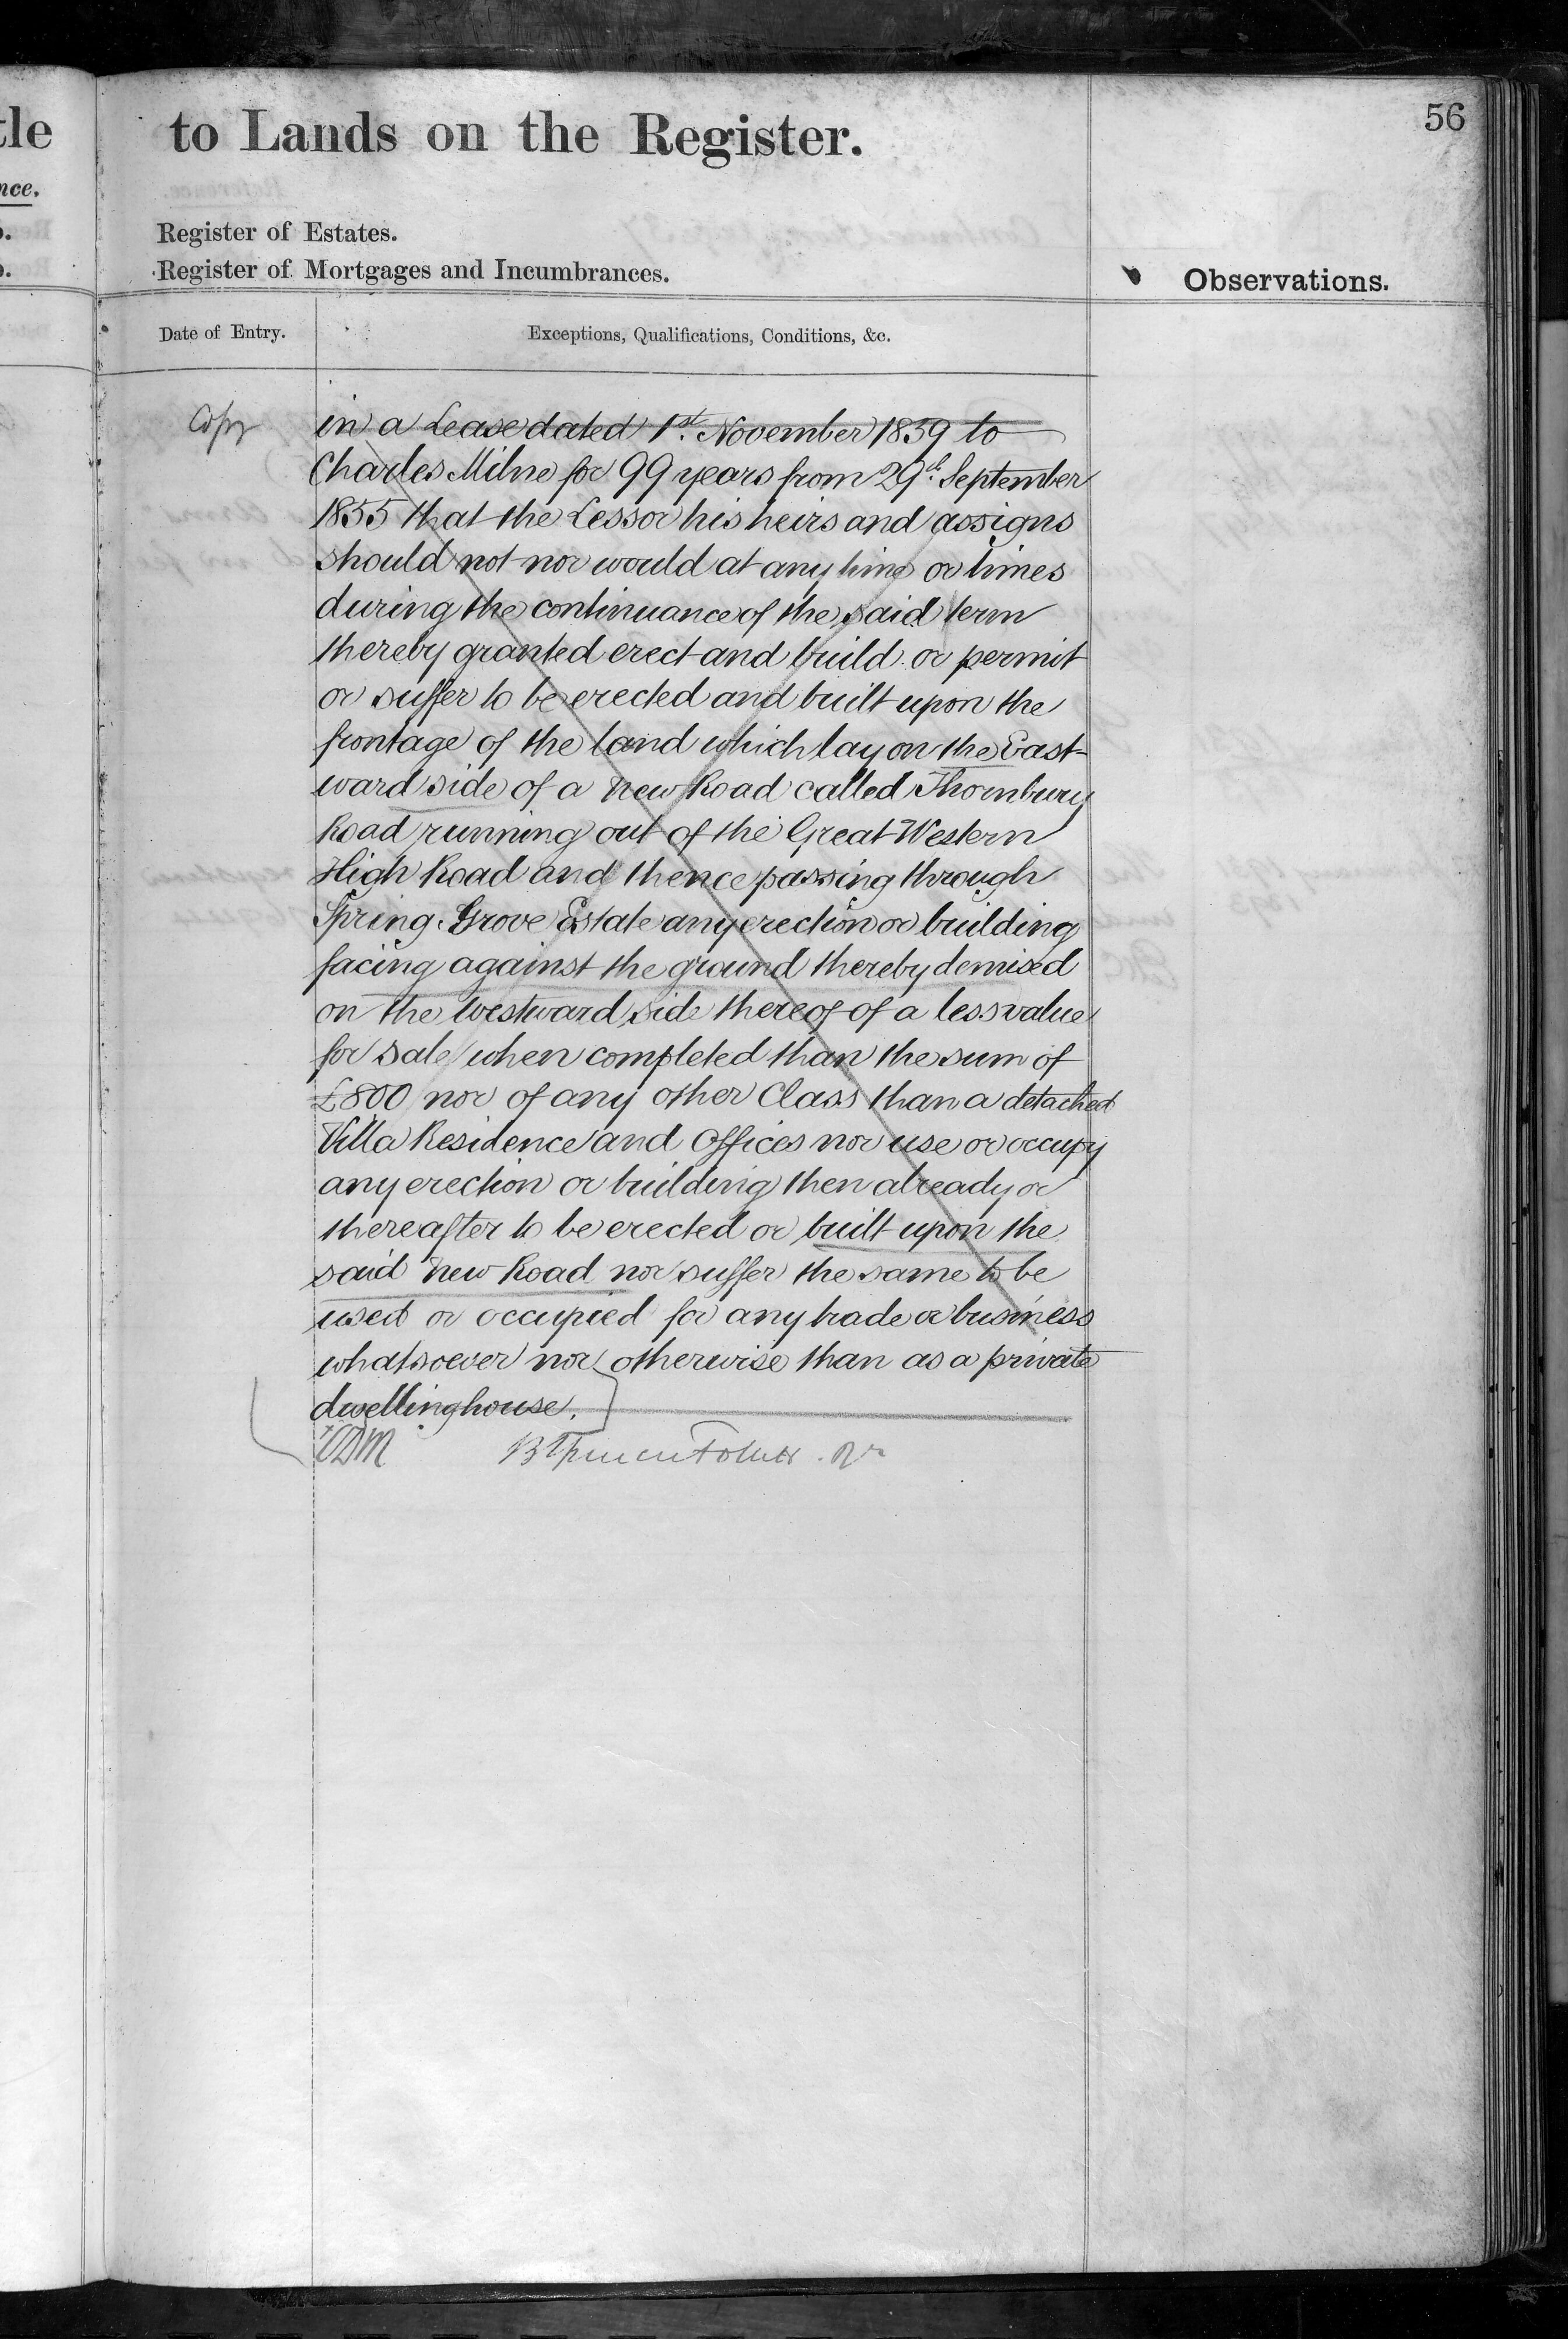 tle
to Lands on the Register.
56
nce.
Register of Estates.
Register of Mortgages and Incumbrances.
Observations.
Date of Entry.
Exceptions, Qualifications, Conditions, &c.
Copy
in a Lease dated 1st. November 1859 to
Charles Milne for 99 years from 29th. September
1855 that the Lessor his heirs and assigns
should not nor would at any time or times
during the continuance of the said term
thereby granted erect and build or permit
or suffer to be erected and built upon the
frontage of the land which lay on the East-
ward side of a New Road called Thornbury
Road running out of the Great Western
High Road and thence passing through
Spring Grove Estate any erection or building
facing against the ground thereby demised
on the Westward side thereof of a less value
for sale when completed than the sum of
£800 nor of any other Class than a detached
Villa Residence and Offices nor use or occupy
any erection or building then already or
thereafter to be erected or built upon the
said New Road nor suffer the same to be
used or occupied for any trade or business
whatsoever nor otherwise than as a private
dwellinghouse.